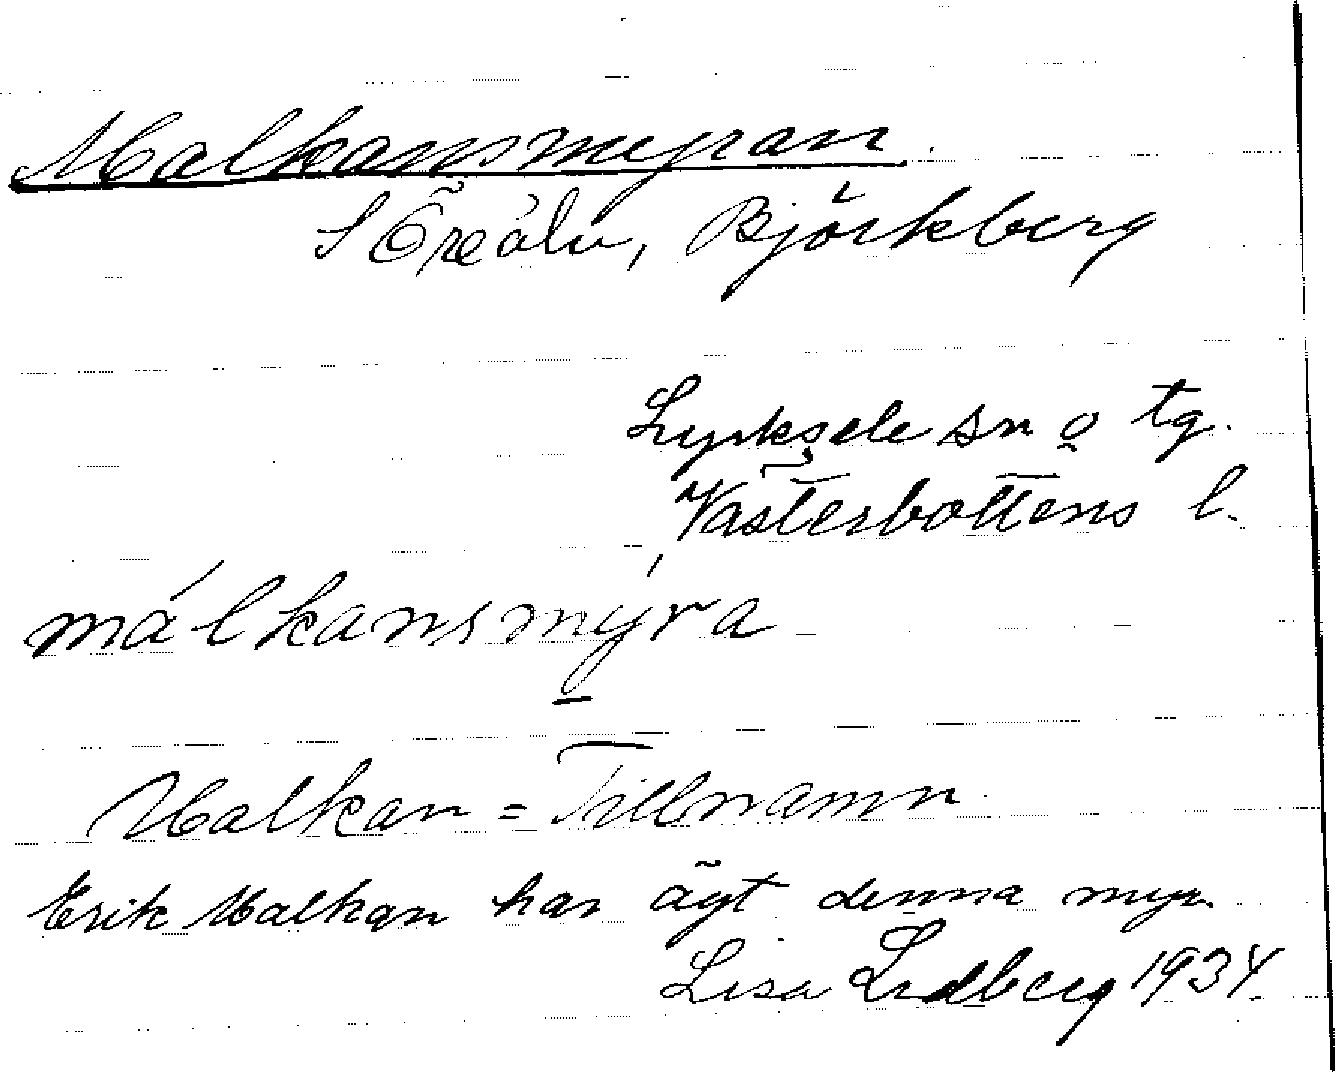 Malkansmyran.
S Öreälv, Björkberg
Lycksele sn o tg.
Västerbottens l.
málkansmýra
Malkan = Tillnamn.
Erik Malkan har ägt denna myr.
Lisa Lidberg 1934.